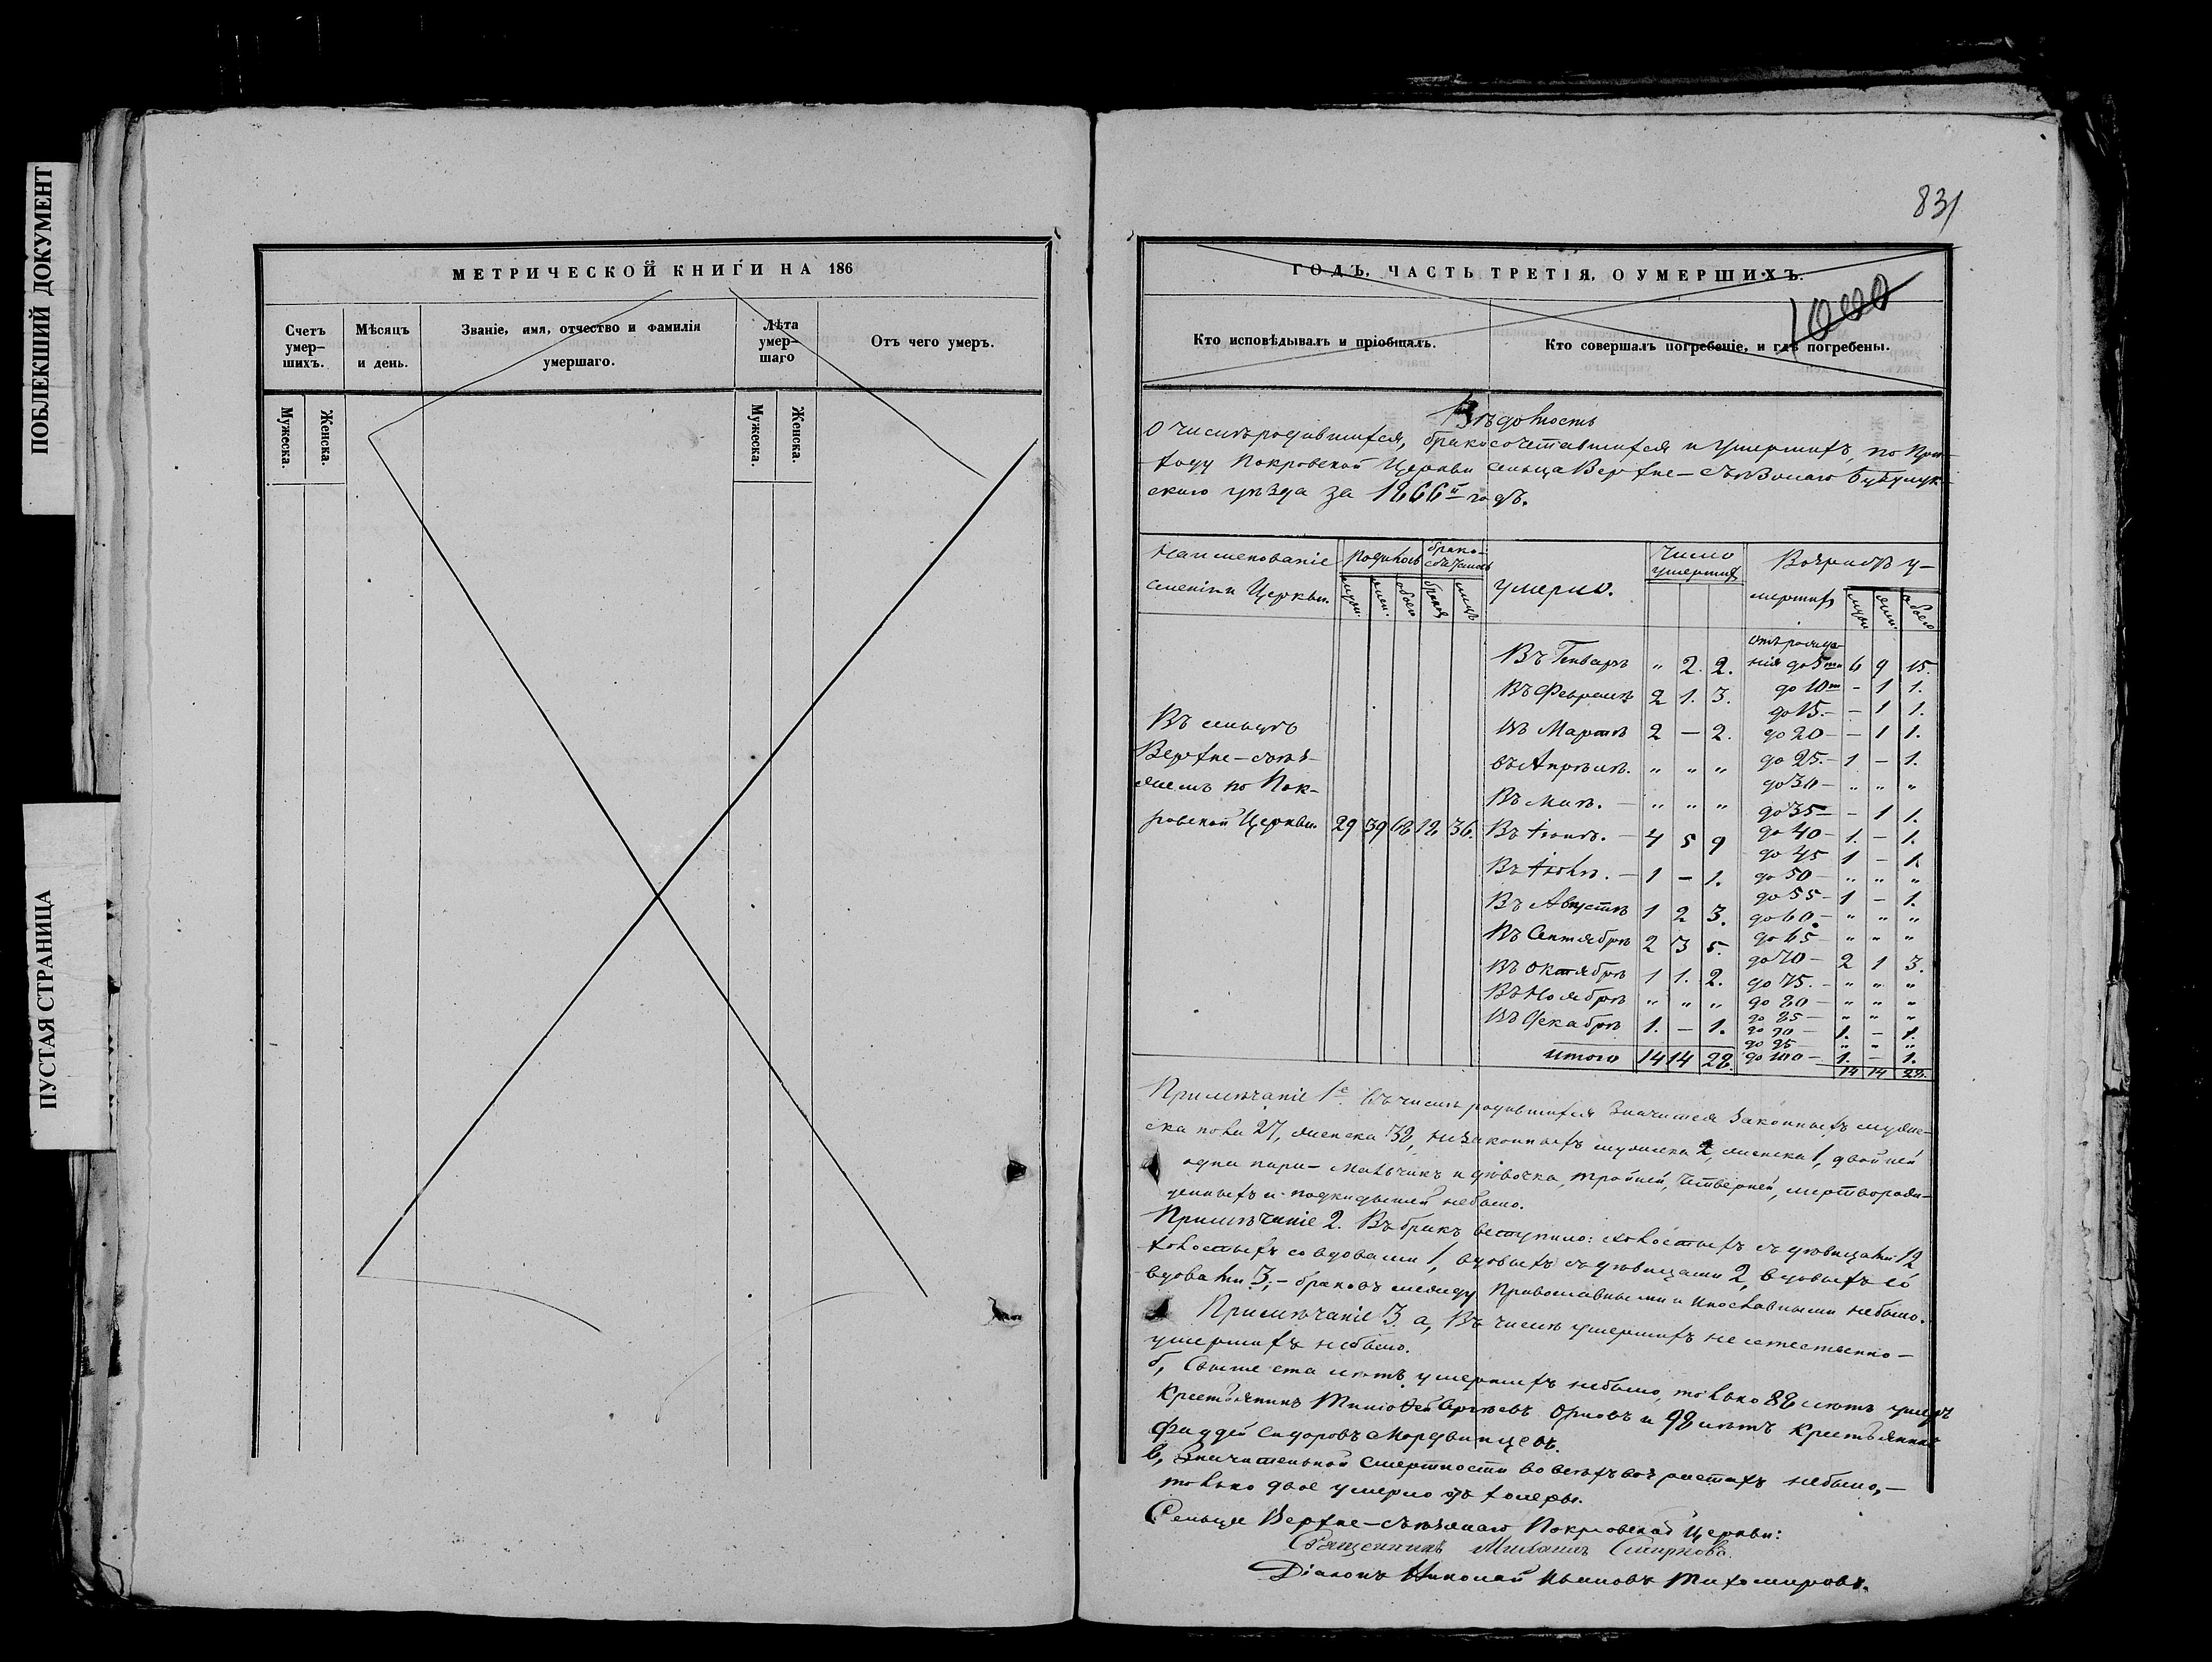 ПОБЛЕКШИЙ ДОКУМЕНТ
ПУСТАЯ СТРАНИЦА
МЕТРИЧЕСКОЙ КНИГИ НА 186
Счетъ умер-шихъ.
Мѣсяцъ и день.
Званіе, имя, отчество и фамилія умершаго.
Лѣта умер-шаго
Отъ чего умеръ.
Мужеска.
Женска.
Мужеска.
Женска.
831
ГОДЪ, ЧАСТЬ ТРЕТІЯ, О УМЕРШИХЪ.
1000
Кто исповѣдывалъ и пріобщалъ.
Кто совершалъ погребеніе, и гдѣ погребены.
Вѣдомость
О числѣ родившихся, бракосочетавшихся и умершихъ, по При-
ходу Покровской Церкви сельца Верхне- Бузулук-
скаго уѣзда за 1866й годъ.
Наименованіе Церкви.
Родилось
брако-
муж.
жен.
обоего
браковъ
лицъ
умерло.
Число умершихъ
Возрастъ у-
мершихъ
муж.
жен.
обоего
Въ сельцѣ
Верхне-
по Пок-
ровской Церкви 29 39 68 18 36.
Въ Генварѣ " 2. 2.
Въ Февралѣ 2 1. 3.
Въ Мартѣ 2 — 2.
въ Апрѣлѣ. " " "
Въ Маѣ. — " " "
Въ Іюнѣ. — 4 5 9
Въ Іюлѣ. — 1 — 1.
Въ Августѣ 1 2 3.
Въ Сентябрѣ 2 3 5.
Въ Октябрѣ 1 1. 2.
Въ Ноябрѣ " " "
Въ Декабрѣ 1. — 1.
итого 14 14 28.
отъ рожде-
нія до 5ти 6 9 15.
до 10ти - 1 1.
до 15.- - 1 1.
до 20- - 1 1.
до 25.- 1 - 1.
до 30- " " "
до 35- - 1 1.
до 40- 1. - 1.
до 45 1 - 1.
до 50- " " "
до 55- 1 - 1.
до 60.- " " "
до 65- " " "
до 70- 2 1 3.
до 75.- " " "
до 80- " " "
до 85- " " "
до 90- 1. - 1.
до 95- " " "
до 100- 1. - 1.
14 14 28.
Примѣчаніе 1е. Въ числѣ родившихся значится законныхъ муже-
ска пола 27, женска 38, незаконныхъ мужеска 2, женска 1, двойней
одна пара- мальчикъ и дѣвочка, тройней, четверней, мертворож-
денныхъ и подкидышей небыло.
Примѣчаніе 2. Въ бракъ вступило: холостыхъ съ дѣвицами 12
холостыхъ со вдовами 1, вдовыхъ съ дѣвицами 2, вдовыхъ со
вдовами 3,- браковъ между Православными и иновѣрными небыло.
Примѣчаніе 3. а, Въ числѣ умершихъ не естественно-
умершихъ небыло.
б, Свыше ста лѣтъ умершихъ небыло, только 88 лѣтъ умеръ
Крестьянинъ Тимофей Сергѣевъ Орловъ и 98 лѣтъ Крестьянинъ
Фаддей Сидоровъ Мордвинцевъ.
в, Значительной смертности во всѣхъ возрастахъ небыло,-
только двое умерло отъ холеры.
Сельца Верхне- Покровской Церкви:
Священникъ Михаилъ Смирновъ.
Діаконъ Николай Ивановъ Тихомировъ.